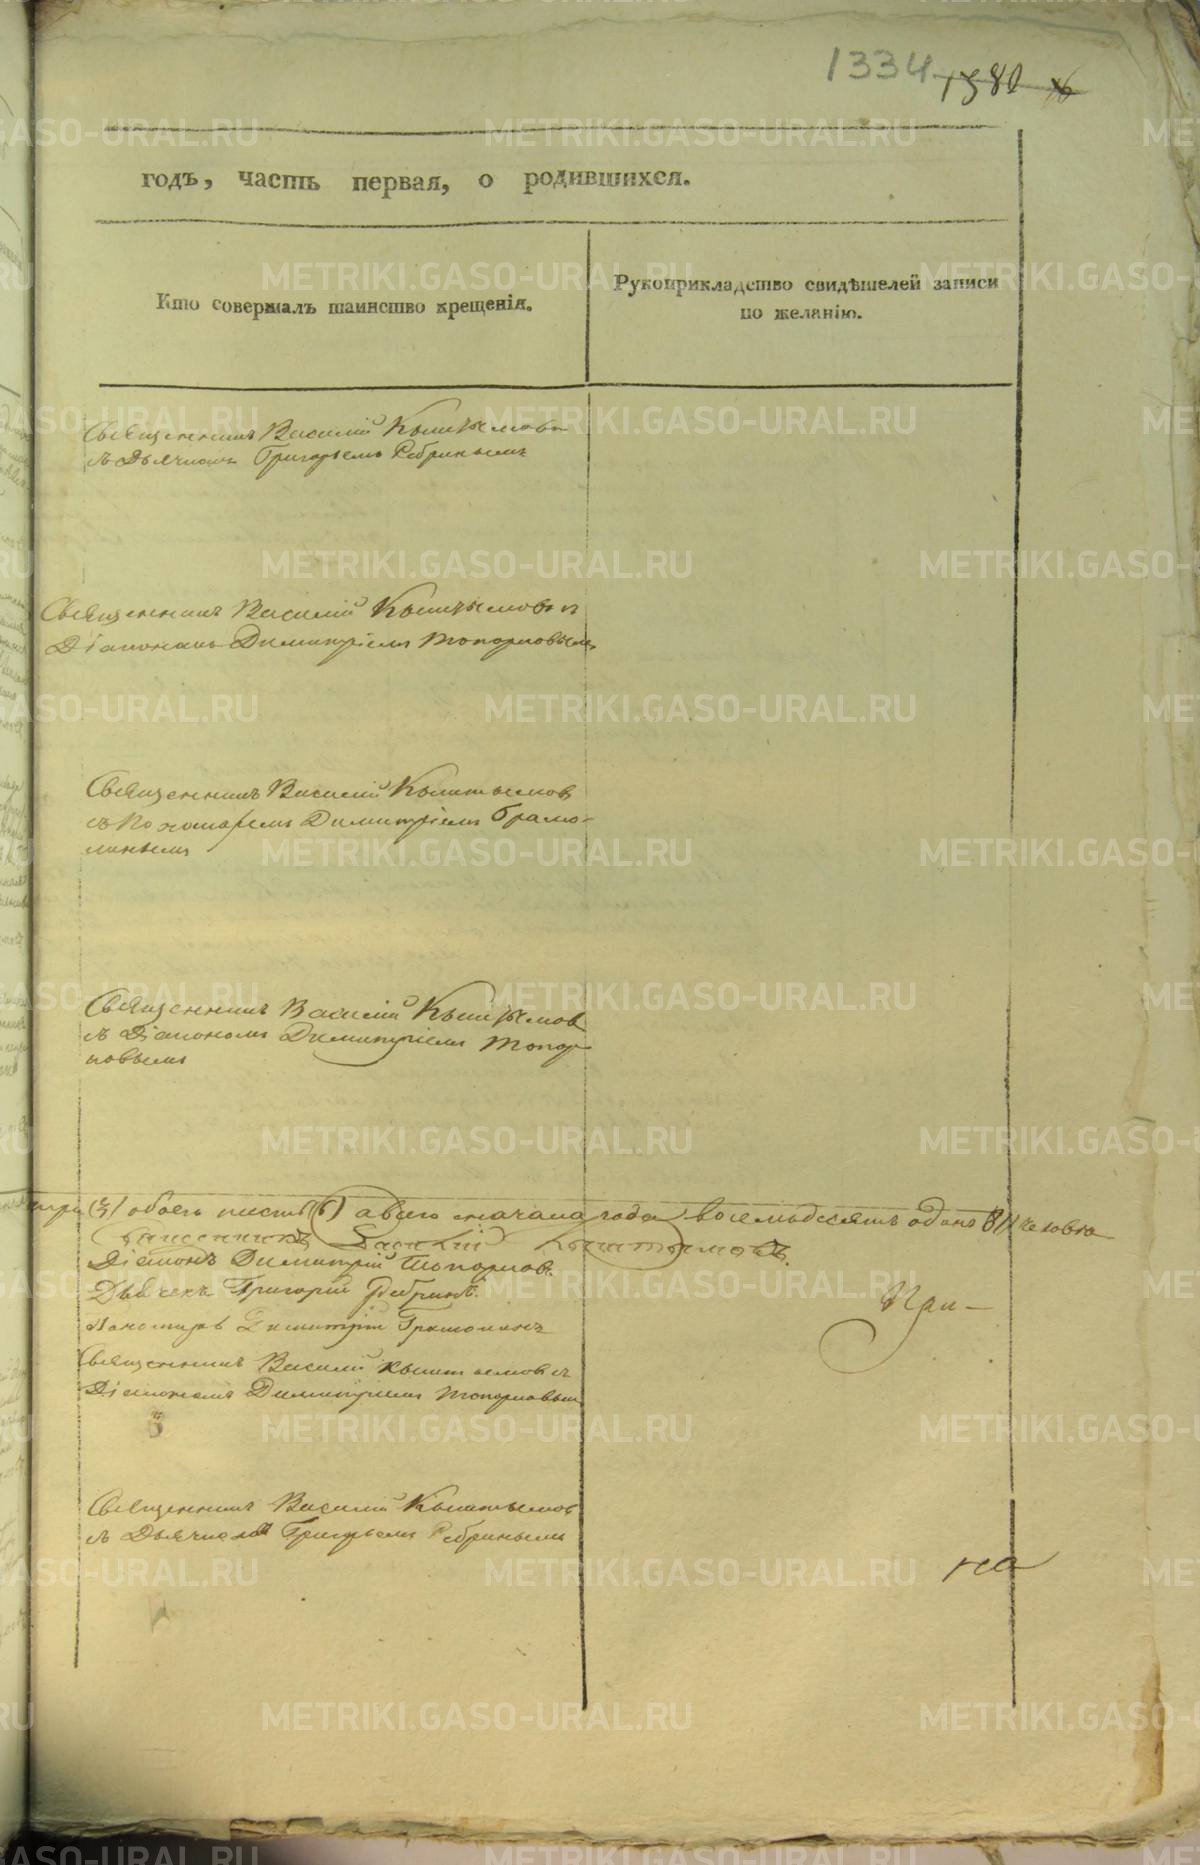 1334 1381
годъ, часть первая, о родившихся.
Кто совершалъ таинство крещенія.
Рукоприкладство свидѣтелей записи
по желанію.
Священникъ Василій Кыштымовъ
съ Дьячкомъ Григорьемъ Ребринымъ
Священникъ Василій Кыштымовъ с
Діакономъ Димитріемъ Топорковымъ
Священникъ Василій Кыштымовъ
съ Пономаремъ Димитріемъ Грамо-
линымъ
Священникъ Василій Кыштымовъ
съ Діакономъ Димитріемъ Топор-
ковымъ
три (3) обоего шесть (6) а всего сначала года восемьдесятъ одинъ 81 человѣкъ
Священникъ Василій Кыштымовъ.
Діаконъ Димитрій Топорковъ.
Дьячекъ Григорій Ребринъ.
Пономарь Димитрій Грамолинъ
Священникъ Василій Кыштымовъ съ
Діакономъ Димитріемъ Топорковымъ
Священникъ Василій Кыштымовъ
съ Дьячкомъ Григорьемъ Ребринымъ
на
METRIKI.GASO-URAL.RU